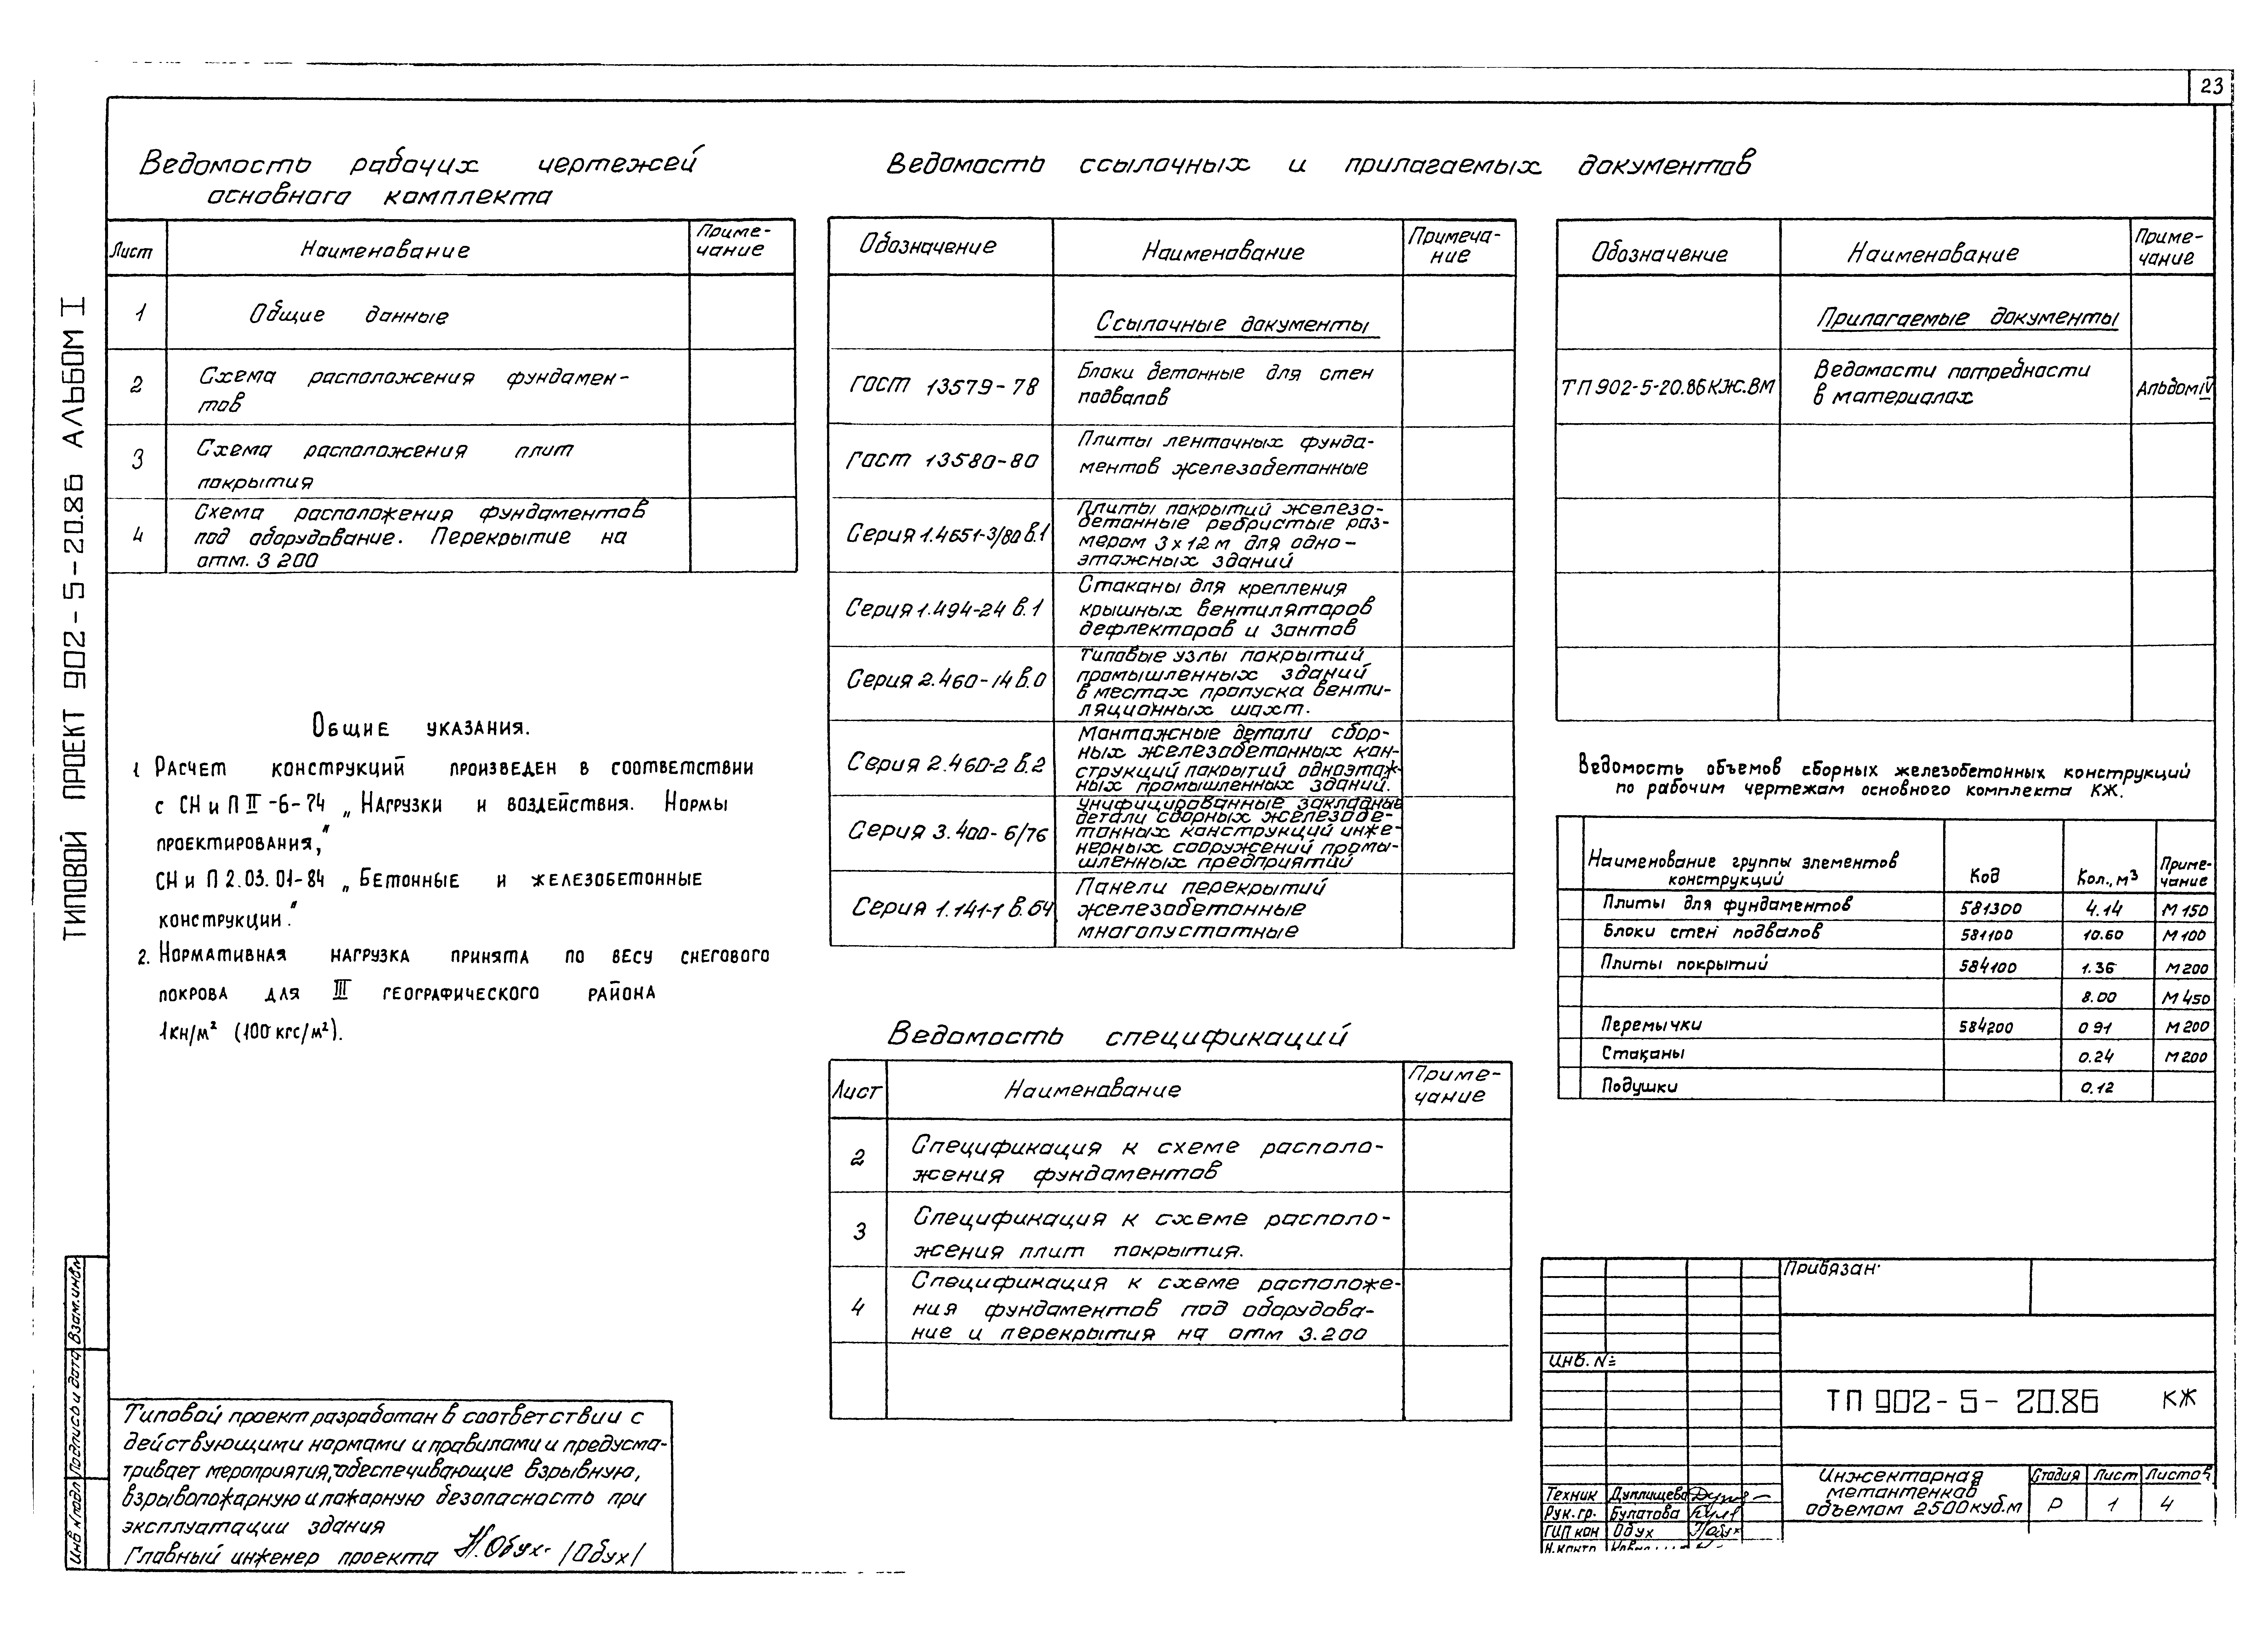 23
ТИПОВОЙ ПРОЕКТ 902-5-20.86 АЛЬБОМ I
Ведомость рабочих чертежей
основного комплекта
Лист
Наименование
Приме-
чание
1
Общие данные
2
Схема расположения фундамен-
тов
3
Схема расположения плит
покрытия
4
Схема расположения фундаментов
под оборудование. Перекрытие на
отм. 3 200
Общие указания.
1 Расчет конструкций произведен в соответствии
с СН и П II-6-74 „Нагрузки и воздействия. Нормы
проектирования,"
СН и П 2.03.01-84 „Бетонные и железобетонные
конструкции."
2. Нормативная нагрузка принята по весу снегового
покрова для III географического района
1кн/м² (100 кгс/м²).
Типовой проект разработан в соответствии с
действующими нормами и правилами и предусма-
тривает мероприятия, обеспечивающие взрывную,
взрывопожарную и пожарную безопасность при
эксплуатации здания
Главный инженер проекта Н.Обух- /Обух/
Ведомость ссылочных и прилагаемых документов
Обозначение
Наименование
Примеча-
ние
Ссылочные документы
ГОСТ 13579-78
Блоки бетонные для стен
подвалов
ГОСТ 13580-80
Плиты ленточных фунда-
ментов железобетонные
Серия 1.4651-3/80 в.1
Плиты покрытий железо-
бетонные ребристые раз-
мером 3х12м для одно-
этажных зданий
Серия 1.494-24 в.1
Стаканы для крепления
крышных вентиляторов
дефлекторов и зонтов
Серия 2.460-14 в.0
Типовые узлы покрытий
промышленных зданий
в местах пропуска венти-
ляционных шахт.
Серия 2.460-2 в.2
Монтажные детали сбор-
ных железобетонных кон-
струкций покрытий одноэтаж-
ных промышленных зданий.
Серия 3.400-6/76
Унифицированные закладные
детали сборных железобе-
тонных конструкций инже-
нерных сооружений промы-
шленных предприятий
Серия 1.141-1 в.64
Панели перекрытий
железобетонные
многопустотные
Ведомость спецификаций
Лист
Наименование
Приме-
чание
2
Спецификация к схеме располо-
жения фундаментов
3
Спецификация к схеме располо-
жения плит покрытия.
4
Спецификация к схеме расположе-
ния фундаментов под оборудова-
ние и перекрытия на отм 3.200
Обозначение
Наименование
Приме-
чание
Прилагаемые документы
ТП 902-5-20.86 КЖ.ВМ
Ведомости потребности
в материалах
Альбом IV
Ведомость объемов сборных железобетонных конструкций
по рабочим чертежам основного комплекта КЖ.
Наименование группы элементов
конструкций
Код
Кол., м³
Приме-
чание
Плиты для фундаментов 581300 4.14 М150
Блоки стен подвалов 581100 10.60 М100
Плиты покрытий 584100 1.36 М200
8.00 М450
Перемычки 584200 0 91 М200
Стаканы 0.24 М200
Подушки 0.12
Привязан:
Инв. №
ТП 902-5-20.86 КЖ
Инжекторная
метантенков
объемом 2500 куб.м
Стадия Лист Листов
Р 1 4
Техник Дуплищева
Рук.гр. Булатова
ГИП кон Обух
Н.контр
Взам.инв.№
Подпись и дата
Инв №подл